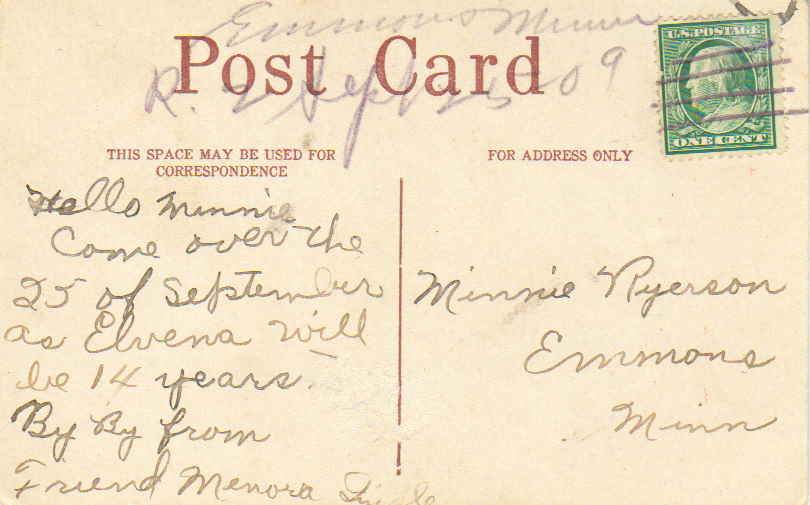 Emmons Minn
Post Card
R. 2 Sept 25 09
U.S. POSTAGE
ONE CENT
THIS SPACE MAY BE USED FOR
CORRESPONDENCE
FOR ADDRESS ONLY
Hello Minnie
Come over the
25 of September
as Elvena will
be 14 years.
By By from
Friend Menora
Minnie Ryerson
Emmons
Minn